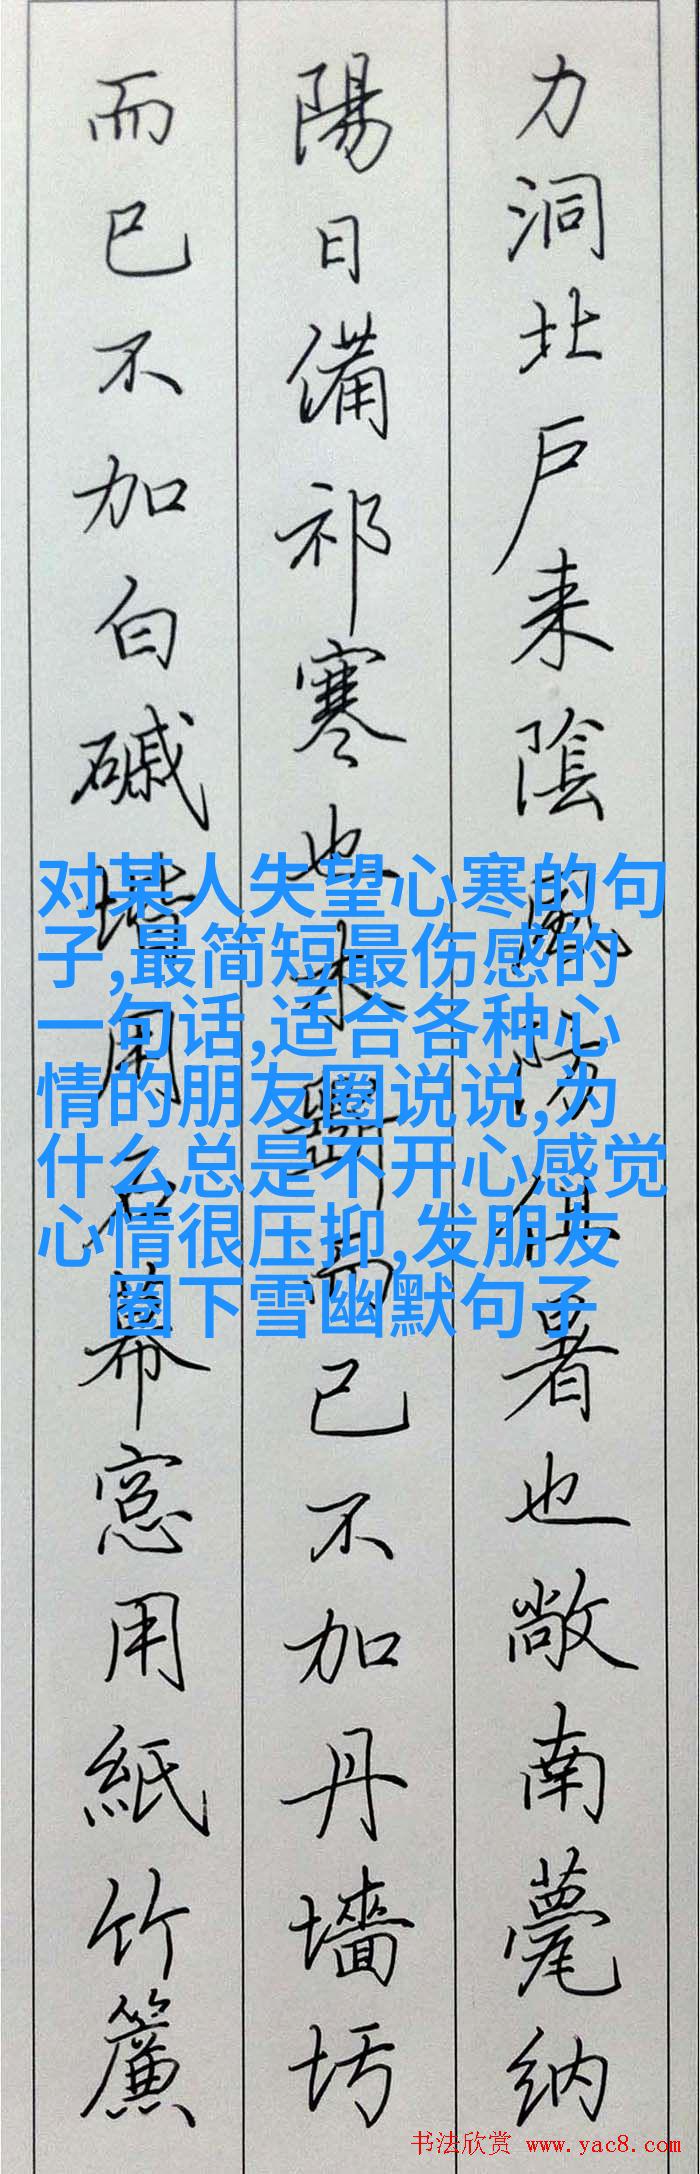 力洞北户来陰風防徂暑也敞南甍纳
陽日備祁寒也木斲而已不加丹墻圬
而已不加白磩堦用石幕窓用紙竹簾
对某人失望心寒的句
子,最简短最伤感的
一句话,适合各种心
情的朋友圈说说,为
什么总是不开心感觉
心情很压抑,发朋友
圈下雪幽默句子
书法欣赏 www.yac8.com